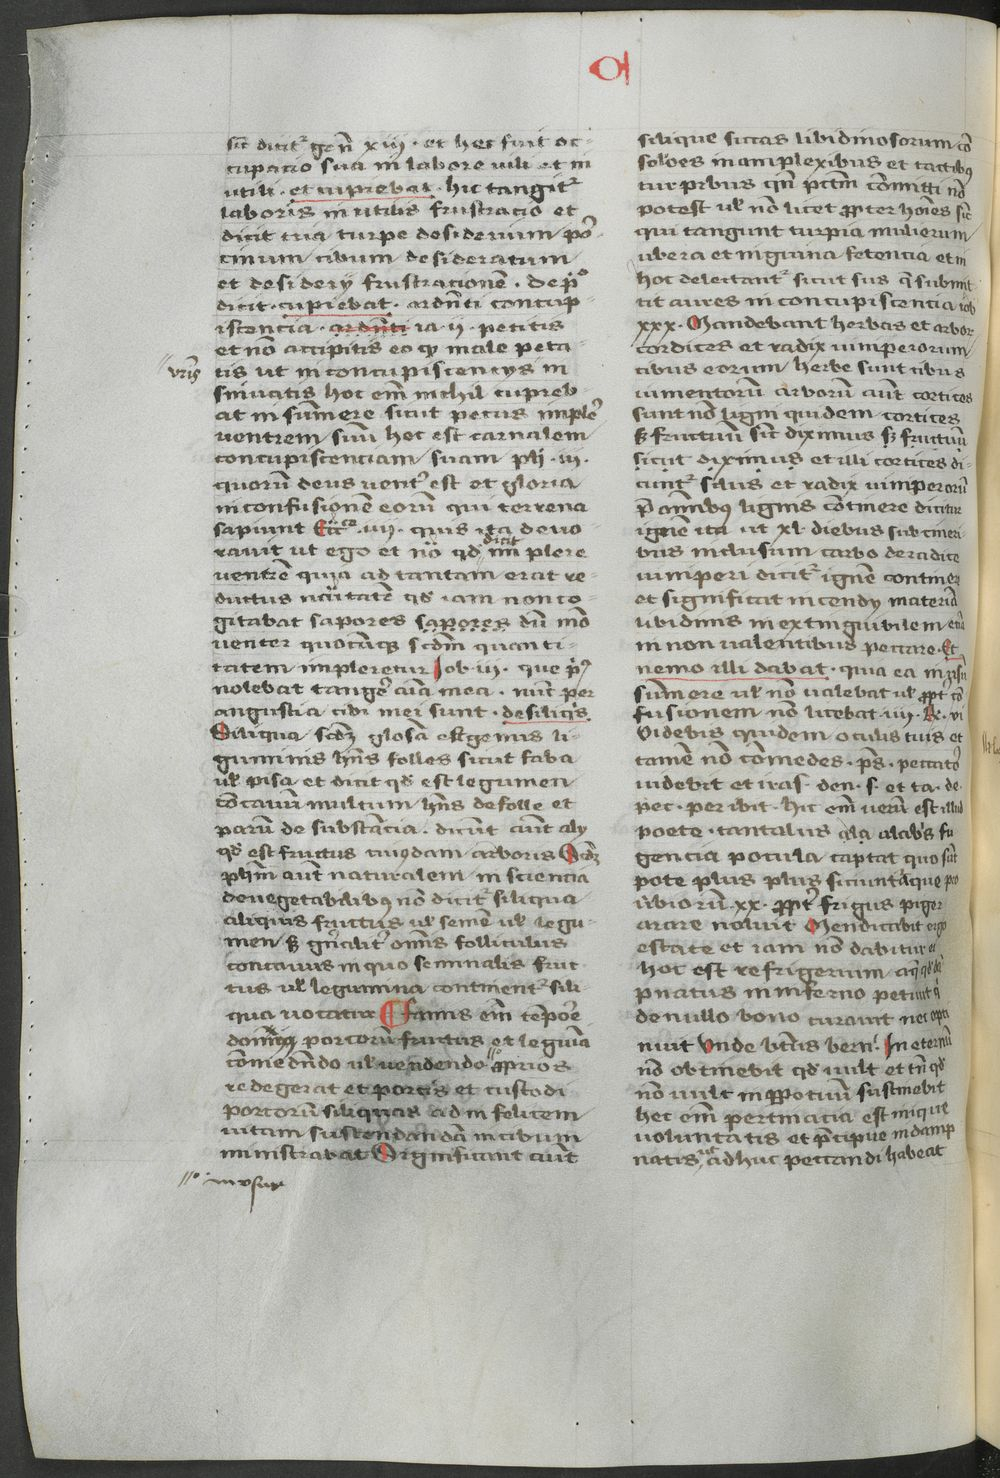 sic̄ dicit᷑ gen̄ xiij · et hec fuit oc-
cupacio sua in labore uili et in
utili · et cupiebat · hic tangit᷑
laboris inutilis frustracio et
dicit tria turpe desiderium por-
cinum cibum desideratum
et desiderij frustracionē · de p̄º
dicit · cupiebat · ardn̄ti concup-
iscencia · ardn̄ti ia · ij · petitis
et nō accipitis eo qꝫ male peta-
tis ut in concupiscencijs
vr̄is
sinuatis hoc em̄ nichil cupieb-
at in sumere sicut pecus imple᷑
uentrem suū hoc est carnalem
concupiscenciam suam phī · iij ·
quorū deus uent᷑ est et gloria
in confusionē eorū qui terrena
sapiunt · iiij · quis ita deuo-
rauit ut ego et nō qd̄ dicit implere
uentrē quia ad tantam erat re-
ductus nc̄itatē qd̄ iam non co-
gitabat sapores sapores dū mō
uenter quocūqꝫ scdm̄ quanti-
tatem impleretur Iob · vi · que p᷑
nolebat tange᷑ aīa mea · nūc per
angustia cibi mei sunt · de siliqis
Siliqua scdꝫ glosā est genus li-
guminis hn̄s folles sicut faba
ul᷑ pisa et dicit qd̄ est legumen
cōcauū multum hn̄s de folle et
parū de substācia · dicūt aut̄ alij
qd̄ est fructus cuiꝰdam arboris Scdꝫ
ph̄m aut̄ naturalem in sciencia
de uegetabilibꝰ nō dicit᷑ siliqua
aliquis fructus ul᷑ semē ul᷑ legu-
men sꝫ gn̄alit᷑ omīs folliculus
concauus in quo seminalis fruc-
tus ul᷑ legumina continent᷑ sili-
qua uocatur Famis em̄ tēpoē
porcorū fructus et leguīa
cōmedn̄do ul᷑ uendendo ꝓprios
redegerat et porcis et custodi
porcorū siliquas ad infelicem
uitam sustendandā in cibum
ministrabat Significant aut̄
in vsuꝫ
silique siccas libidinosorum cō
solōes in amplexibus et tactibꝰ
turpibus qn̄ pctm̄ cōmitti nō
potest ul᷑ nō licet ꝓpter hoīes sic̄
qui tangunt turpia mulierum
ubera et inguina fetencia et in
hoc delectant᷑ sicut sus q̄ submit
tit aures in concupiscencia iob
xxx · Mandebant herbas et arbor
cordices et radix iuniperorum
cibus eorum herbe sunt cibus
iumentorū arborū aut̄ cortices
sunt nō ligni quidem cortices
sꝫ fructuū sic̄ diximus sꝫ fructuū
sicut diximus et illi cortices di-
cunt᷑ siliqs et radix iuniperorū
p̄ omībus lignis cōtinere dicitur
ignē ita ut xl diebus sub cineri
bus inclusum carbo de radice
iuniperi dicit᷑ ignē continer̄
et significat incendij materiā
libidinis inextinguibilem eciā
in non ualentibus peccare · Et
nemo illi dabat · quia ea in
sumere ul᷑ nō ualebat ul᷑ ꝓpt᷑ cō
fusionem nō licebat · iiij · Re · vi
Videbis quidem oculis tuis et
tamē nō comedes · ps · peccator᷑
uidebit et iras · den · s · et ta · de ·
pec · peribit · hic em̄ uerū est illud
poete · tantalus fu
gencia pocula captat quo sūt
pote plus plus siciunt aque pro
ūbiorū · xx · ꝓpt᷑ frigus piger
arare noluit Mendicabit ergo
estate et iam nō dabitur ei
hoc est refrigerium
pnatus in inferno petiuit
de nullo bono curauit nec opta
uit Unde btūs bern̄ · In eternū
nō obtinebit qd̄ uult et tn̄ qd̄
nō uult in ꝑpetuū sustinebit
hec em̄ pertinacia est inique
uoluntatis et p̄cipue in damp
natis ut adhuc peccandi habeat